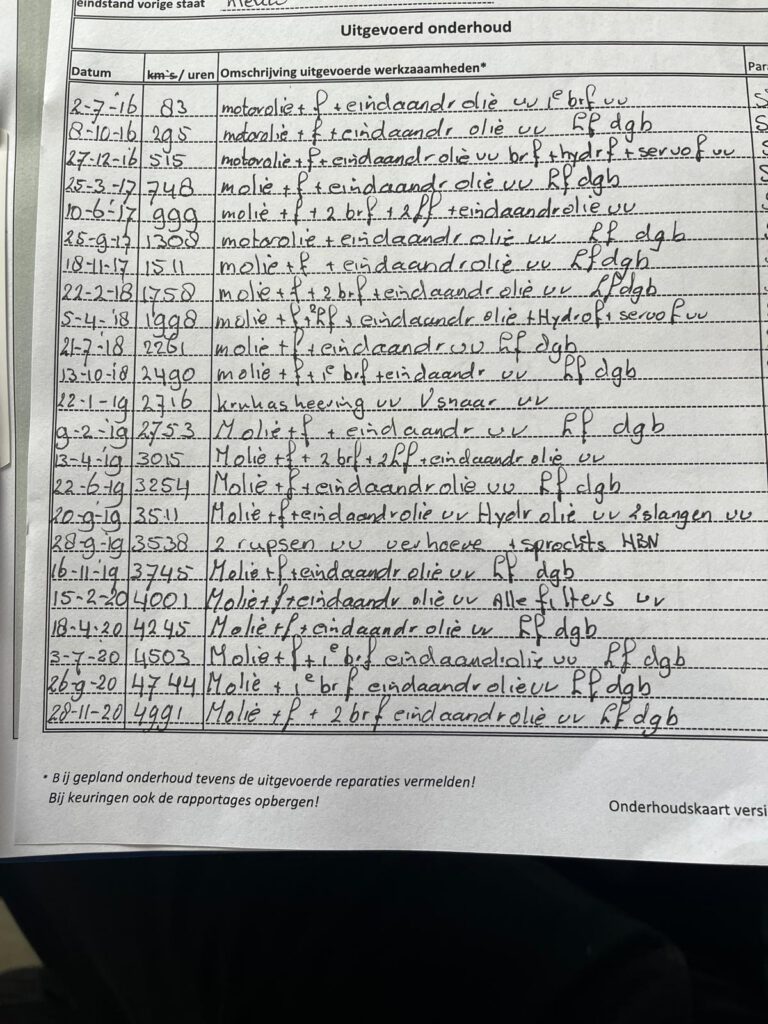 eindstand vorige staat nieuw
Uitgevoerd onderhoud
Datum km's / uren Omschrijving uitgevoerde werkzaaamheden* Para
2-7-'16 83 motorolie + f + eindaandr olië vv 1e brf vv S
8-10-16 295 motorolie + f + eindaandr olië vv Lf dgb S
27-12-16 515 motorolië + f + eindaandr olië vv brf + hydrf + servof vv
25-3-'17 748 molië + f + eindaandr olië vv Lf dgb
10-6-'17 999 molië + f + 2 brf + 2 Lf + eindaandrolie vv
25-9-17 1308 motorolië + eindaandr olië vv Lf dgb
18-11-17 1511 molië + f + eindaandr olië vv Lf dgb
22-2-18 1758 molië + f + 2 brf + eindaandr olië vv Lf dgb
5-4-'18 1998 molië + f + 2Lf + eindaandr olië + Hydrof + servof vv
21-7-'18 2261 molië + f + eindaandr vv Lf dgb
13-10-18 2490 molië + f + 1e brf + eindaandr vv Lf dgb
22-1-19 2716 krukaskeering vv Vsnaar vv
9-2-'19 2753 Molië + f + eindaandr vv Lf dgb
13-4-19 3015 Molië + f + 2 brf + 2Lf + eindaandr olië vv
22-6-19 3254 Molië + f + eindaandr olië vv Lf dgb
20-9-19 3511 Molië + f + eindaandrolië vv Hydr olië vv 2 slangen vv
28-9-19 3538 2 rupsen vv verhoeve + sprockts HBN
16-11-19 3745 Molië + f + eindaandr olië vv Lf dgb
15-2-20 4001 Molië + f + eindaandr olië vv Alle filters vv
18-4-20 4245 Molië + f + eindaandr olië vv Lf dgb
3-7-20 4503 Molië + f + 1e brf eindaandrolie vv Lf dgb
26-9-20 4744 Molië + 1e brf eindaandr olië vv Lf dgb
28-11-20 4991 Molië + f + 2 brf eindaandr olië vv Lf dgb
* Bij gepland onderhoud tevens de uitgevoerde reparaties vermelden!
Bij keuringen ook de rapportages opbergen!
Onderhoudskaart versi